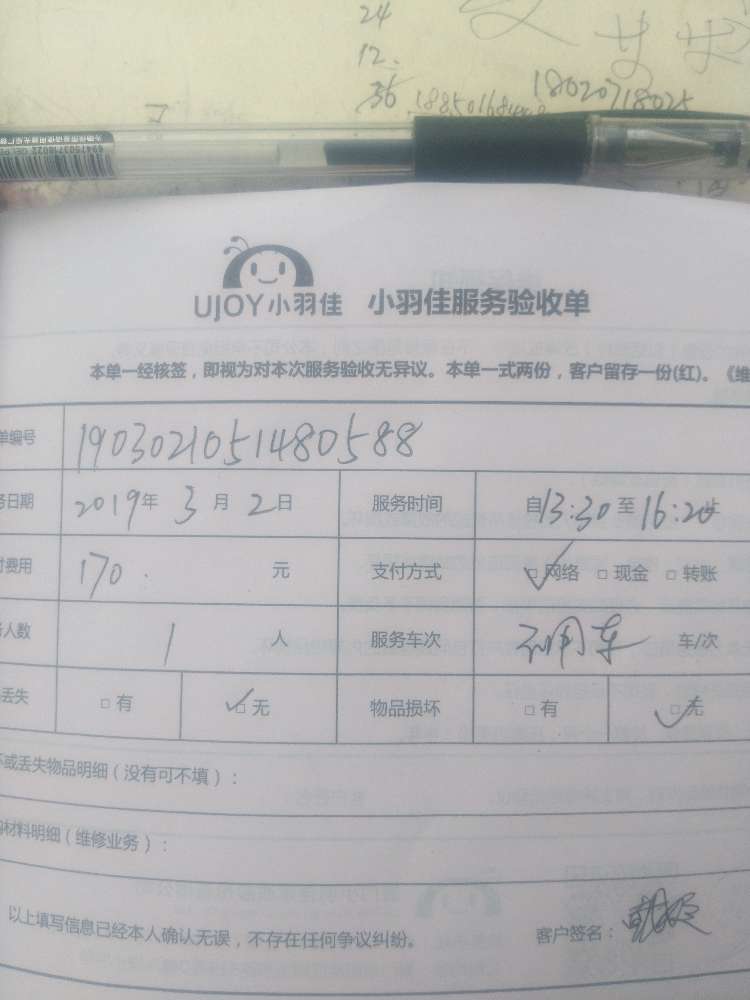 24
12.
36 18020718025
6947503718022
UJOY小羽佳 小羽佳服务验收单
本单一经核签，即视为对本次服务验收无异议。本单一式两份，客户留存一份(红)。《维
单编号 1903021051480588
务日期 2019年 3月 2日 服务时间 自13:30至16:20
费用 170. 元 支付方式 ☑网络 □现金 □转账
人数 1 人 服务车次 不用车 车/次
丢失 □有 ☑无 物品损坏 □有 ☑无
或丢失物品明细（没有可不填）：
材料明细（维修业务）：
以上填写信息已经本人确认无误，不存在任何争议纠纷。 客户签名：